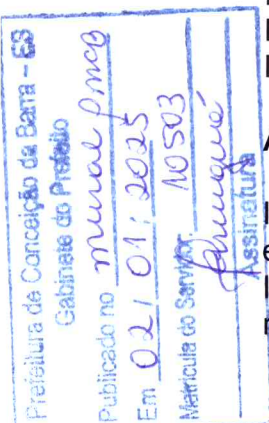 Prefeitura de Conceição da Barra - ES
Gabinete do Prefeito
Publicado no mural pmcb
Em 02/01/2025
Matrícula do Servidor: 10503
Assinatura